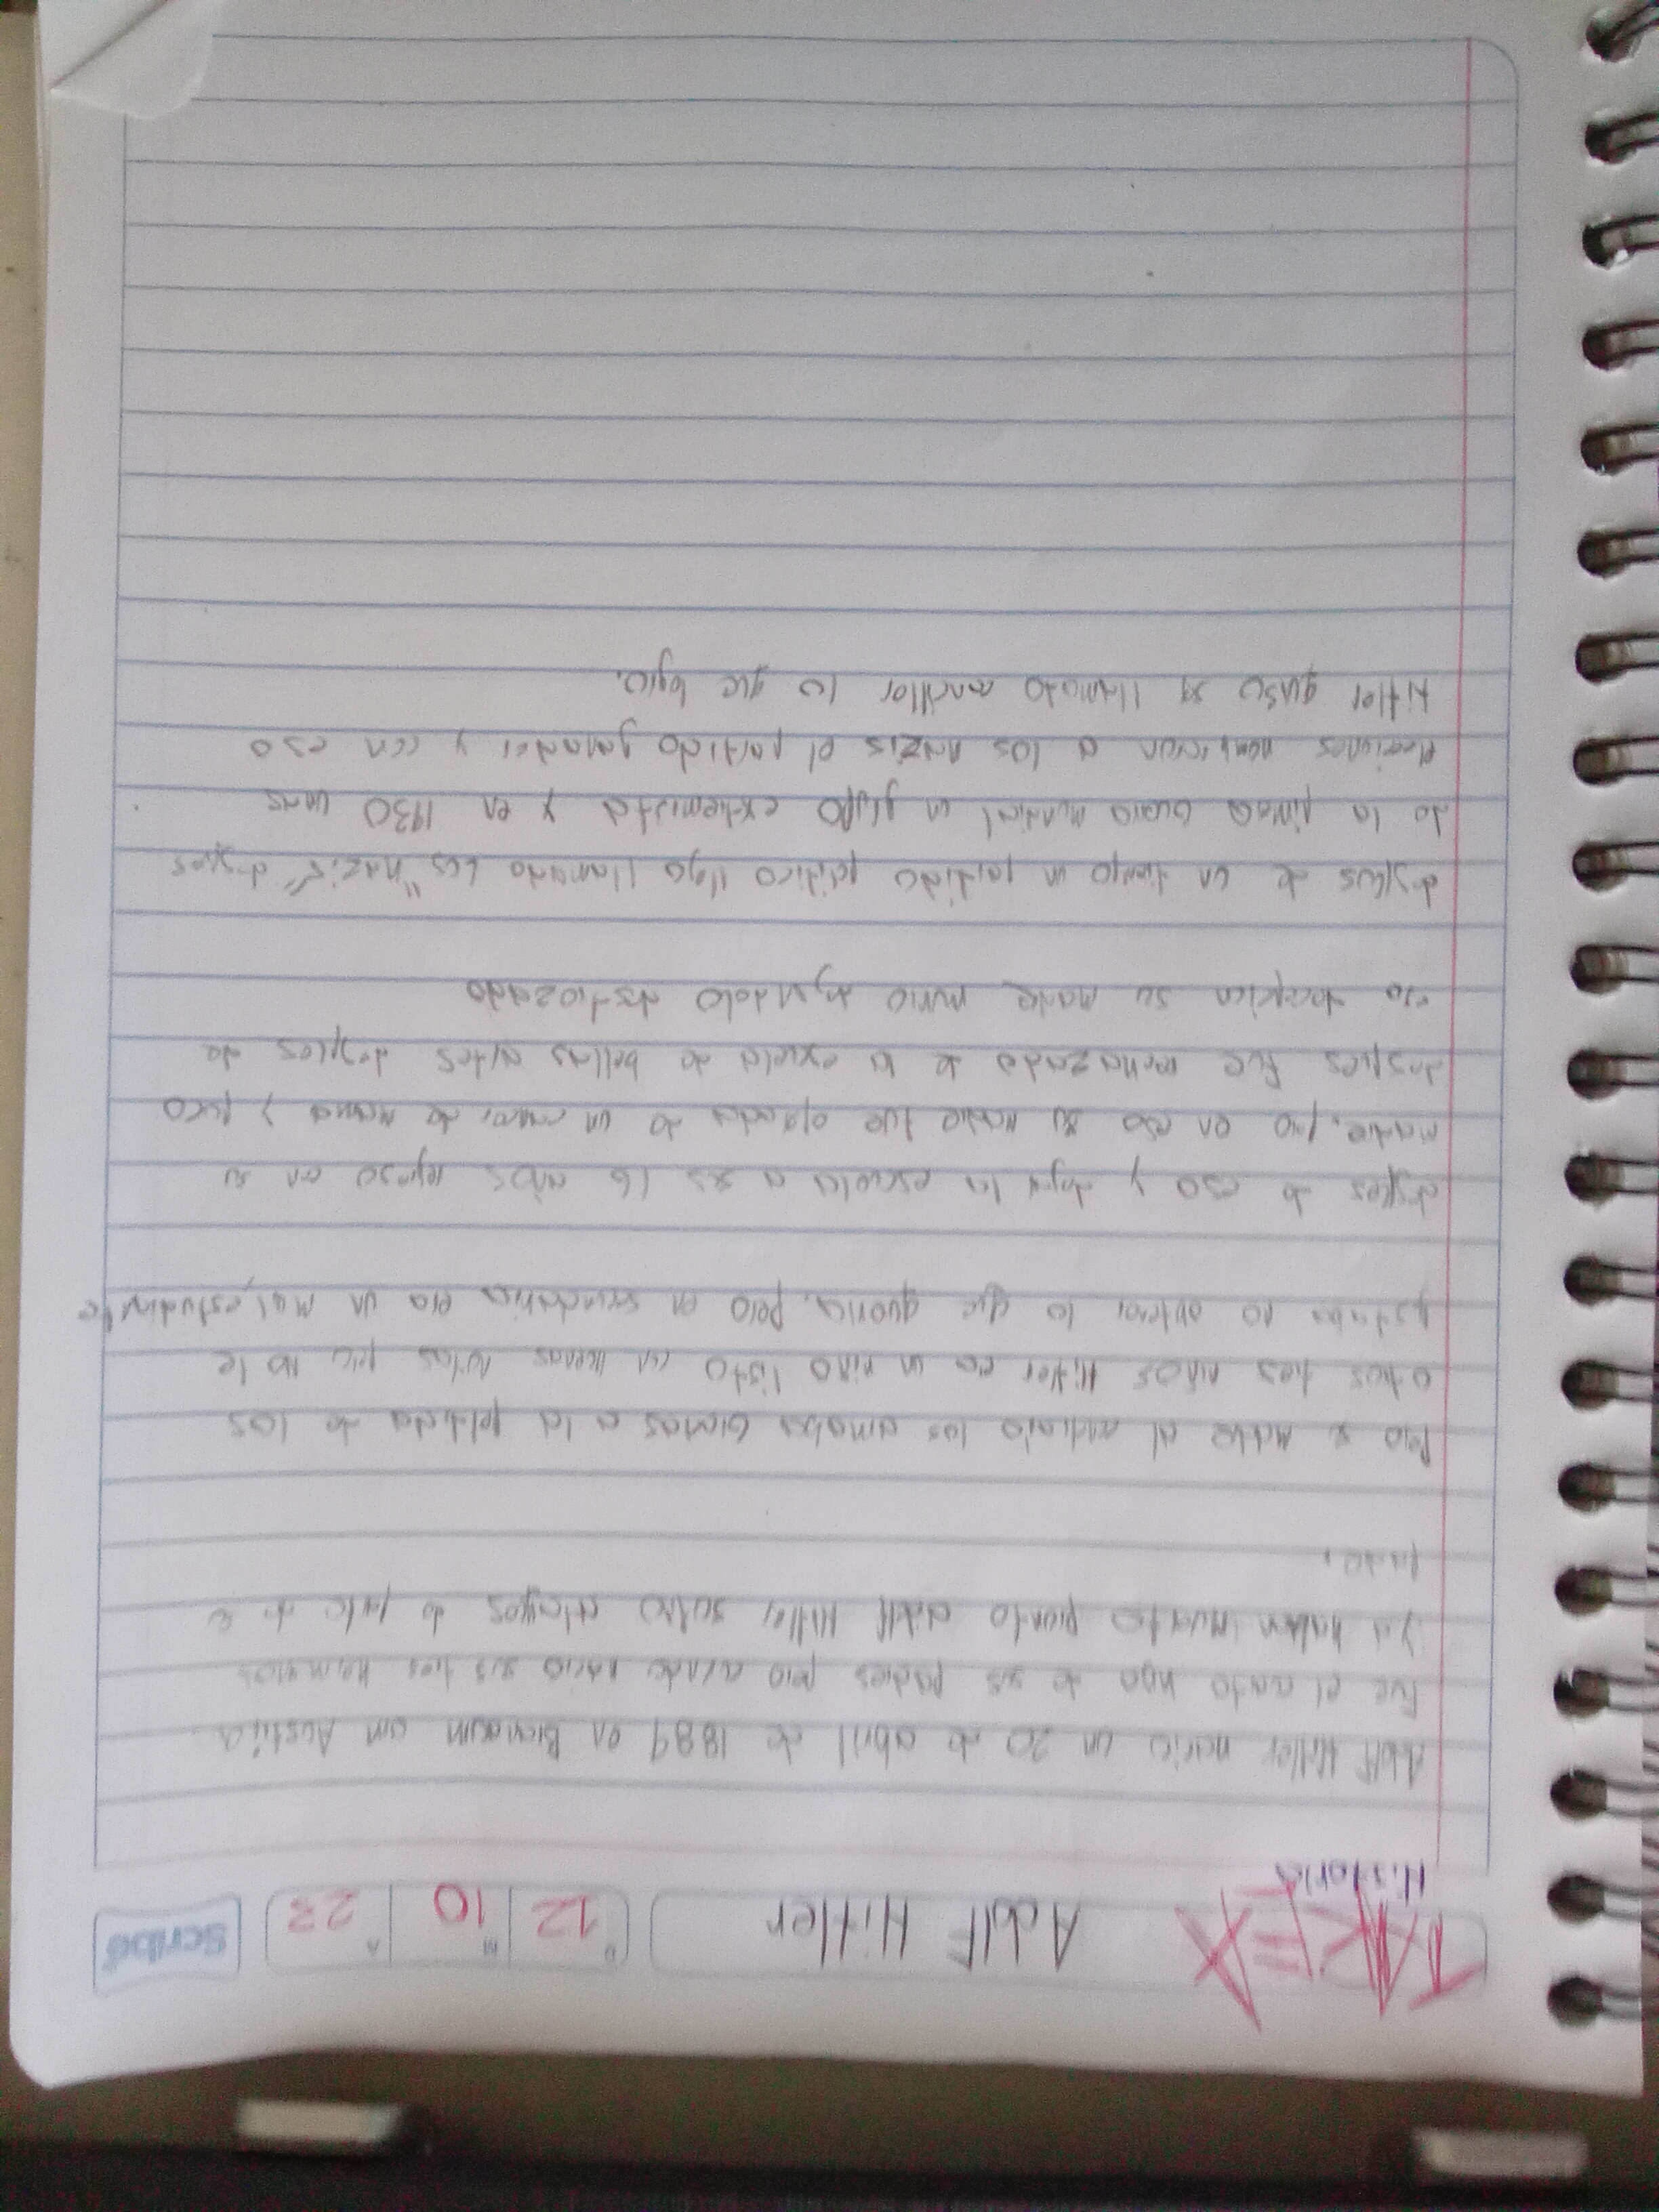 TAREA
Adolf Hitler
D 12 M 10 A 23
Scribe
Historia
Adolf Hitler nacio un 20 de abril de 1889 en Braunaum am Austria
Fue el cuarto hijo de sus padres pero cuando nacio sus tres hermanos
ya habian muerto pronto Adolf Hitler sufrio ataques de parte de su
padre.
Pero su madre al contrario los amaba Gracias a la perdida de los
otros tres niños Hitler era un niño listo con buenas notas pero no le
gustaba no obtener lo que queria, pero en secundaria era un mal estudiante
despues de eso y dejar la escuela a sus 16 años regreso con su
madre, pero en eso su madre fue operada de un cancer de mama y poco
despues fue rechazado de la escuela de bellas artes despues de
esa decepcion su madre murio dejandolo destrozado
despues de un tiempo un partido politico llego llamado Los "Nazis" despues
de la primera Guerra mundial un grupo extremista y en 1930 unas
elecciones nombraron a los Nazis el partido ganador y con eso
Hitler quiso ser llamado canciller lo que logro.